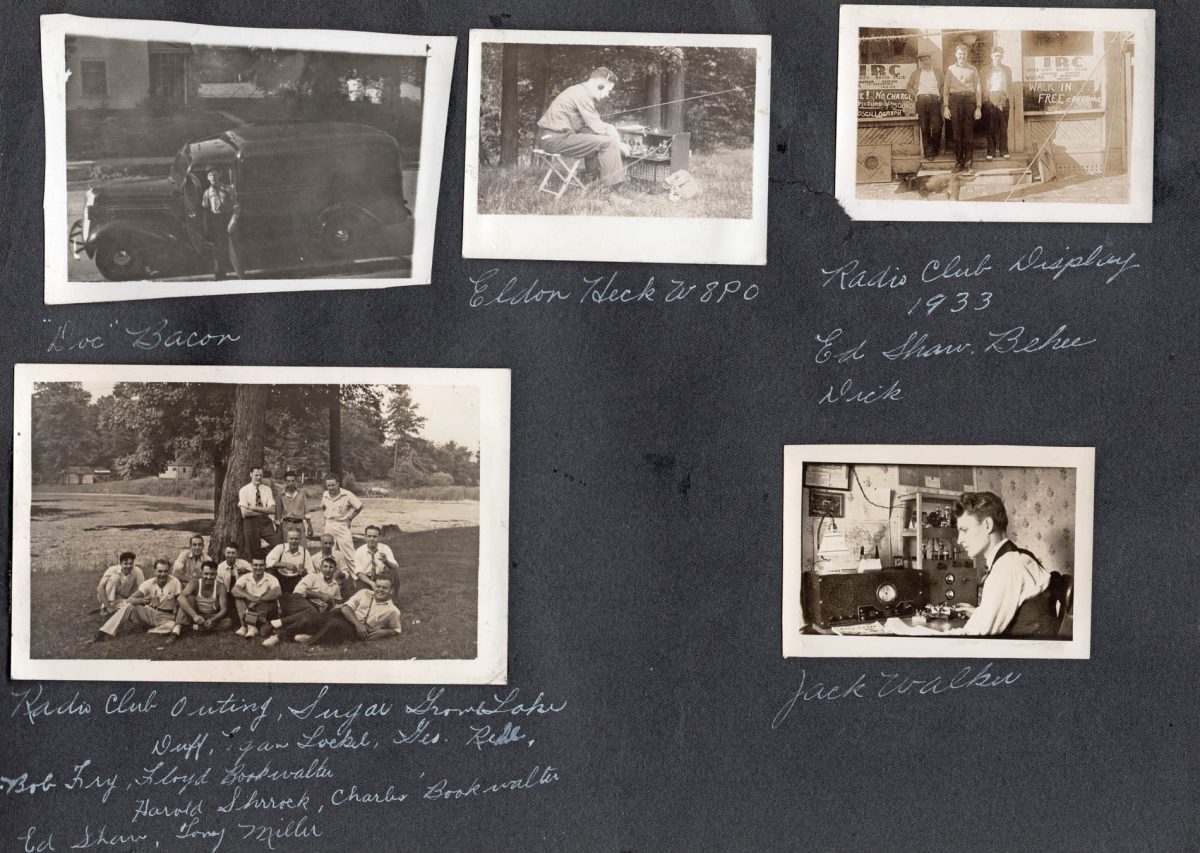 "Doc" Bacon
Eldon Heck W8PO
IRC
RADIO CLUB
! NO CHARGE
PICTURE OF SOUND
OSCILLOGRAPH
IRC
RADIO CLUB
WALK IN
FREE
Radio Club Display
1933
Ed Shaw. Behee
Dick
Radio Club Outing, Sugar Grove Lake
Duff, Lockl, Geo.
Bob Fry, Floyd Bookwalter
Harold Shrrock, Charles Bookwalter
Ed Shaw, Tony Miller
Jack Walker